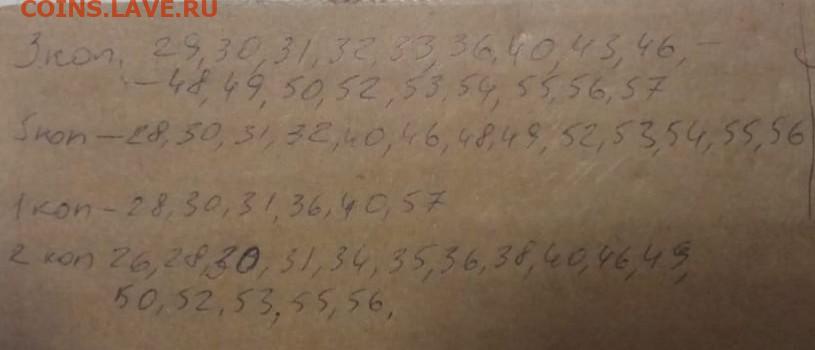 COINS.LAVE.RU
3 коп. 29,30,31,32,33,36,40,43,46,-
-48,49,50,52,53,54,55,56,57
5 коп-28,30,31,32,40,46,48,49,52,53,54,55,56
1 коп-28,30,31,36,40,57
2 коп 26,28,30,31,34,35,36,38,40,46,49,
50,52,53,55,56,